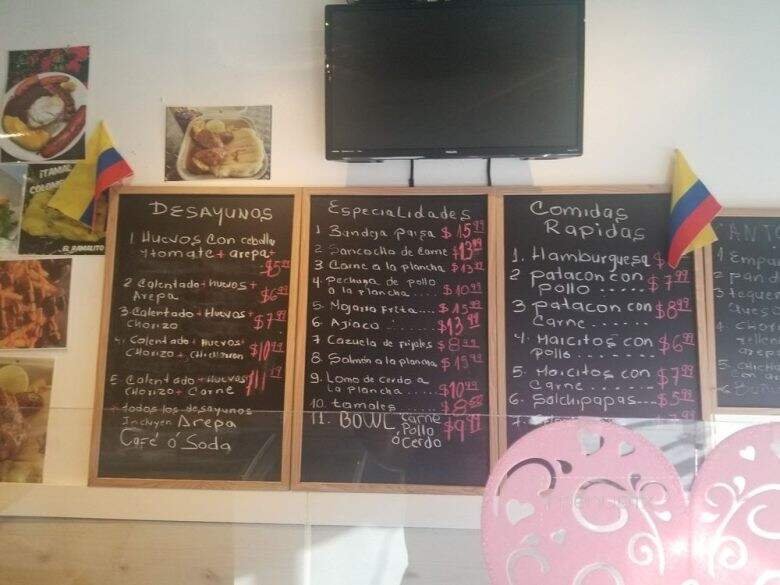 ¡TAMAL
COLOM
EL RAMALITO
PHILIPS
DESAYUNOS
1 Huevos con cebolla
y tomate + arepa +
$5.99
2 Calentado + huevos +
Arepa $6.99
3 Calentado + Huevos +
Chorizo $7.99
4 Calentado + Huevos
Chorizo + Chicharron $10.99
5 Calentado + Huevos
Chorizo + Carne
+ todos los desayunos
Incluyen Arepa
Café ó Soda
Especialidades
1 Bandeja paisa $15.99
2 Sancocho de Carne $13.99
3 Carne a la plancha $13.99
4. Pechuga de pollo
a la plancha .... $10.99
5 Mojarra Frita .... $15.99
6 Ajiaco .... $13.99
7 Cazuela de frijoles $8.99
8 Salmón a la plancha $13.99
9. Lomo de Cerdo a
la plancha .... $10.99
10 tamales
11. BOWL Carne
Pollo
ó Cerdo $9.99
Comidas
Rapidas
1. Hamburguesa $
2 patacon con
pollo ....... $7.99
3 patacon con
Carne ...... $8.99
4. Maicitos con
pollo ....... $6.99
5. Maicitos con
Carne ....... $7.99
6. Salchipapas .... $5.99
7.
ANTO
1 Empa
2 pan d
3 teque
4 Cho
arepa
5